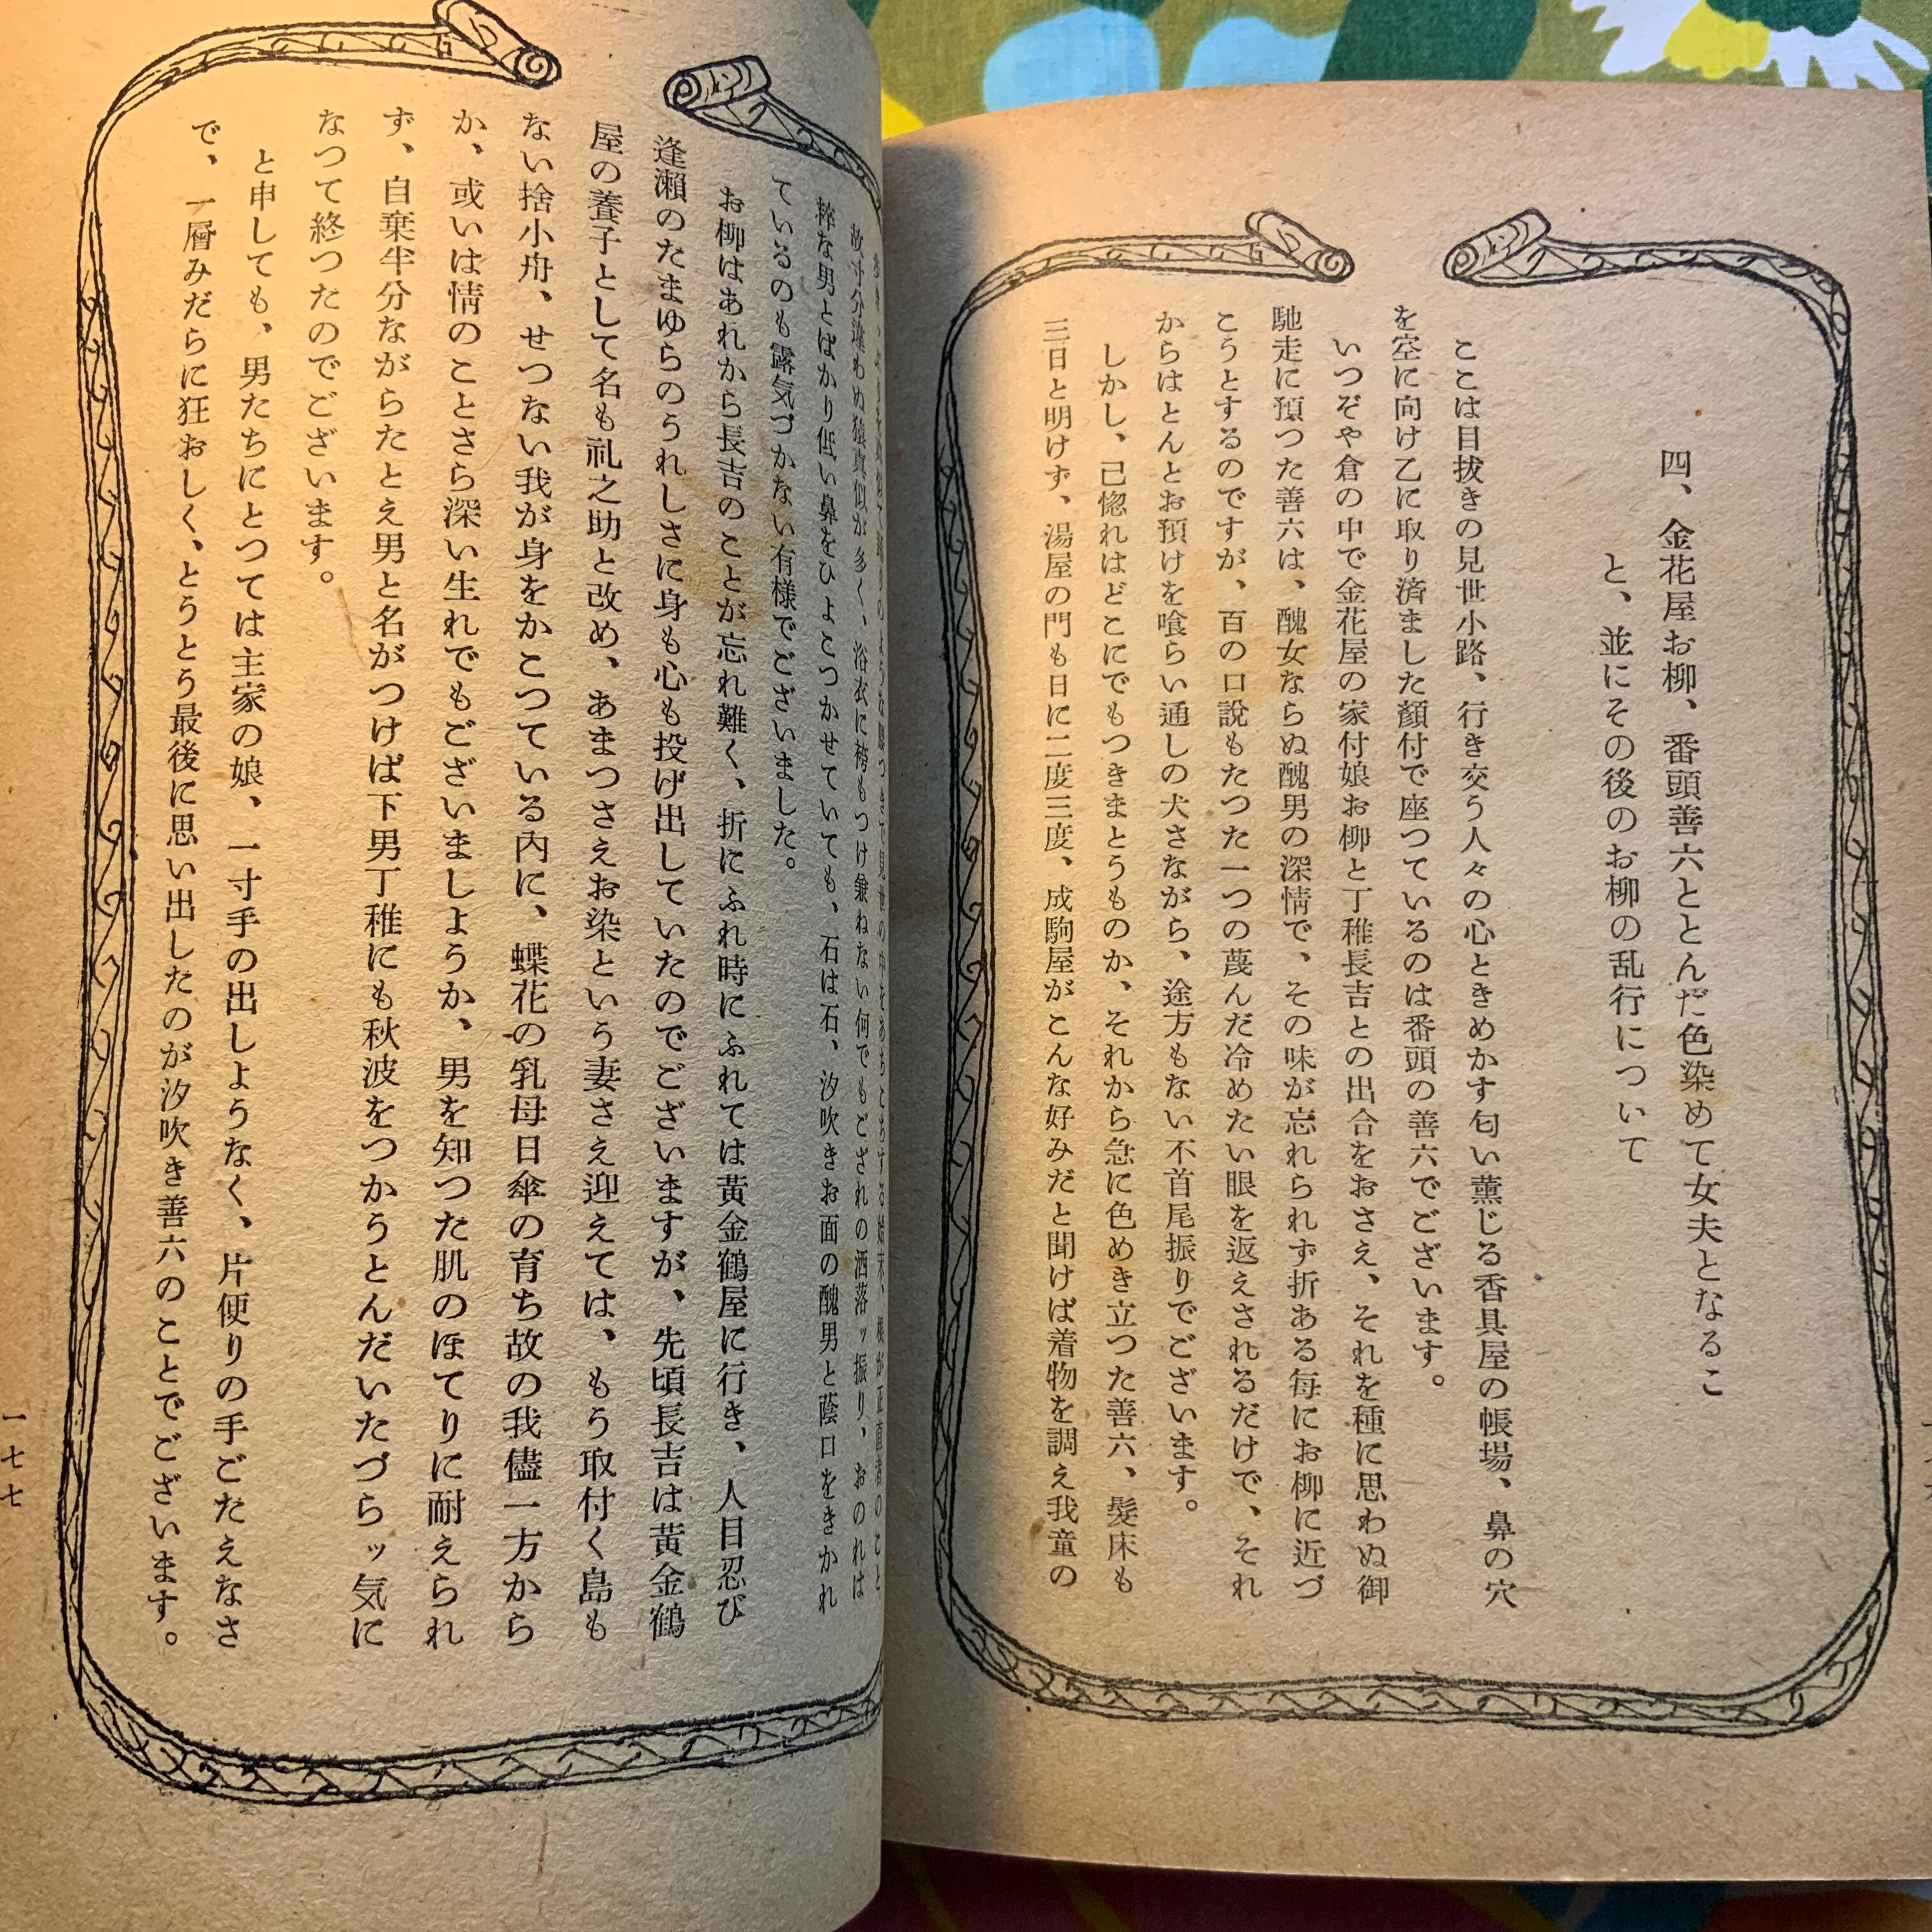 四、金花屋お柳、番頭善六ととんだ色染めて女夫となるこ
と、並にその後のお柳の乱行について
ここは目抜きの見世小路、行き交う人々の心ときめかす匂い薫じる香具屋の帳場、鼻の穴
を空に向け乙に取り済ました顔付で座つているのは番頭の善六でございます。
いつぞや倉の中で金花屋の家付娘お柳と丁稚長吉との出合をおさえ、それを種に思わぬ御
馳走に預つた善六は、醜女ならぬ醜男の深情で、その味が忘れられず折ある毎にお柳に近づ
こうとするのですが、百の口説もたつた一つの蔑んだ冷めたい眼を返えされるだけで、それ
からはとんとお預けを喰らい通しの犬さながら、途方もない不首尾振りでございます。
しかし、己惚れはどこにでもつきまとうものか、それから急に色めき立つた善六、髪床も
三日と明けず、湯屋の門も日に二度三度、成駒屋がこんな好みだと聞けば着物を調え我童の
見世の中をあちこちする始末、根が正直者のこと
故寸分違わぬ猿真似が多く、浴衣に袴もつけ兼ねない何でもござれの洒落ッ振り、おのれは
粋な男とばかり低い鼻をひよこつかせていても、石は石、汐吹きお面の醜男と蔭口をきかれ
ているのも露気づかない有様でございました。
お柳はあれから長吉のことが忘れ難く、折にふれ時にふれては黄金鶴屋に行き、人目忍び
逢瀬のたまゆらのうれしさに身も心も投げ出していたのでございますが、先頃長吉は黄金鶴
屋の養子として名も礼之助と改め、あまつさえお染という妻さえ迎えては、もう取付く島も
ない捨小舟、せつない我が身をかこつている內に、蝶花の乳母日傘の育ち故の我儘一方から
か、或いは情のことさら深い生れでもございましようか、男を知つた肌のほてりに耐えられ
ず、自棄半分ながらたとえ男と名がつけば下男丁稚にも秋波をつかうとんだいたづらッ気に
なつて終つたのでございます。
と申しても、男たちにとつては主家の娘、一寸手の出しようなく、片便りの手ごたえなさ
で、一層みだらに狂おしく、とうとう最後に思い出したのが汐吹き善六のことでございます。
一七七